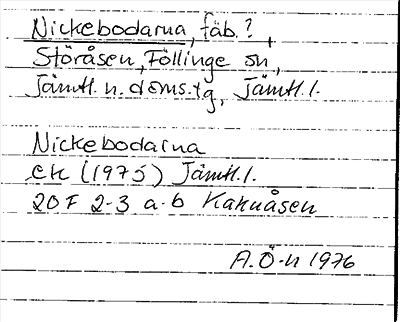 Nickebodarna, fäb.?,
Störåsen, Föllinge sn,
Jämtl. n. doms.tg, Jämtl. l.
Nickebodarna
ek (1975) Jämtl. l.
20F 2-3 a-b Kakuåsen
A.Ö-n 1976